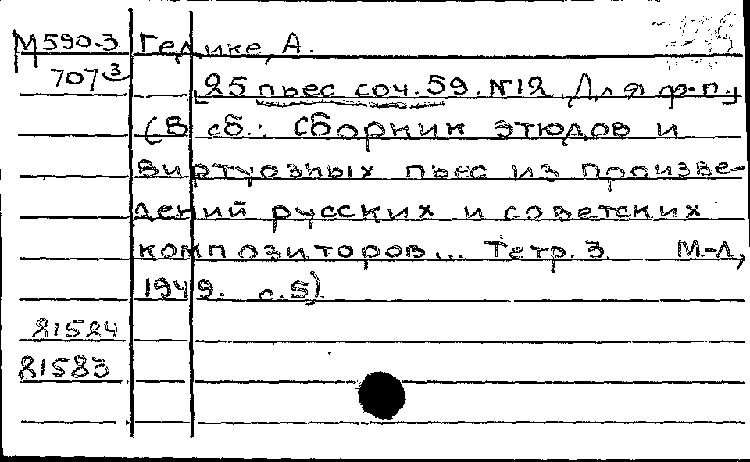 М590-3 Гедике, А.
707³ [25 пьес соч. 59. №12 Для ф-п.]
(В сб.: Сборник этюдов и
виртуозных пьес из произве-
дений русских и советских
композиторов... Тетр. 3 М-Л,
1949. с.5)
81524
81583